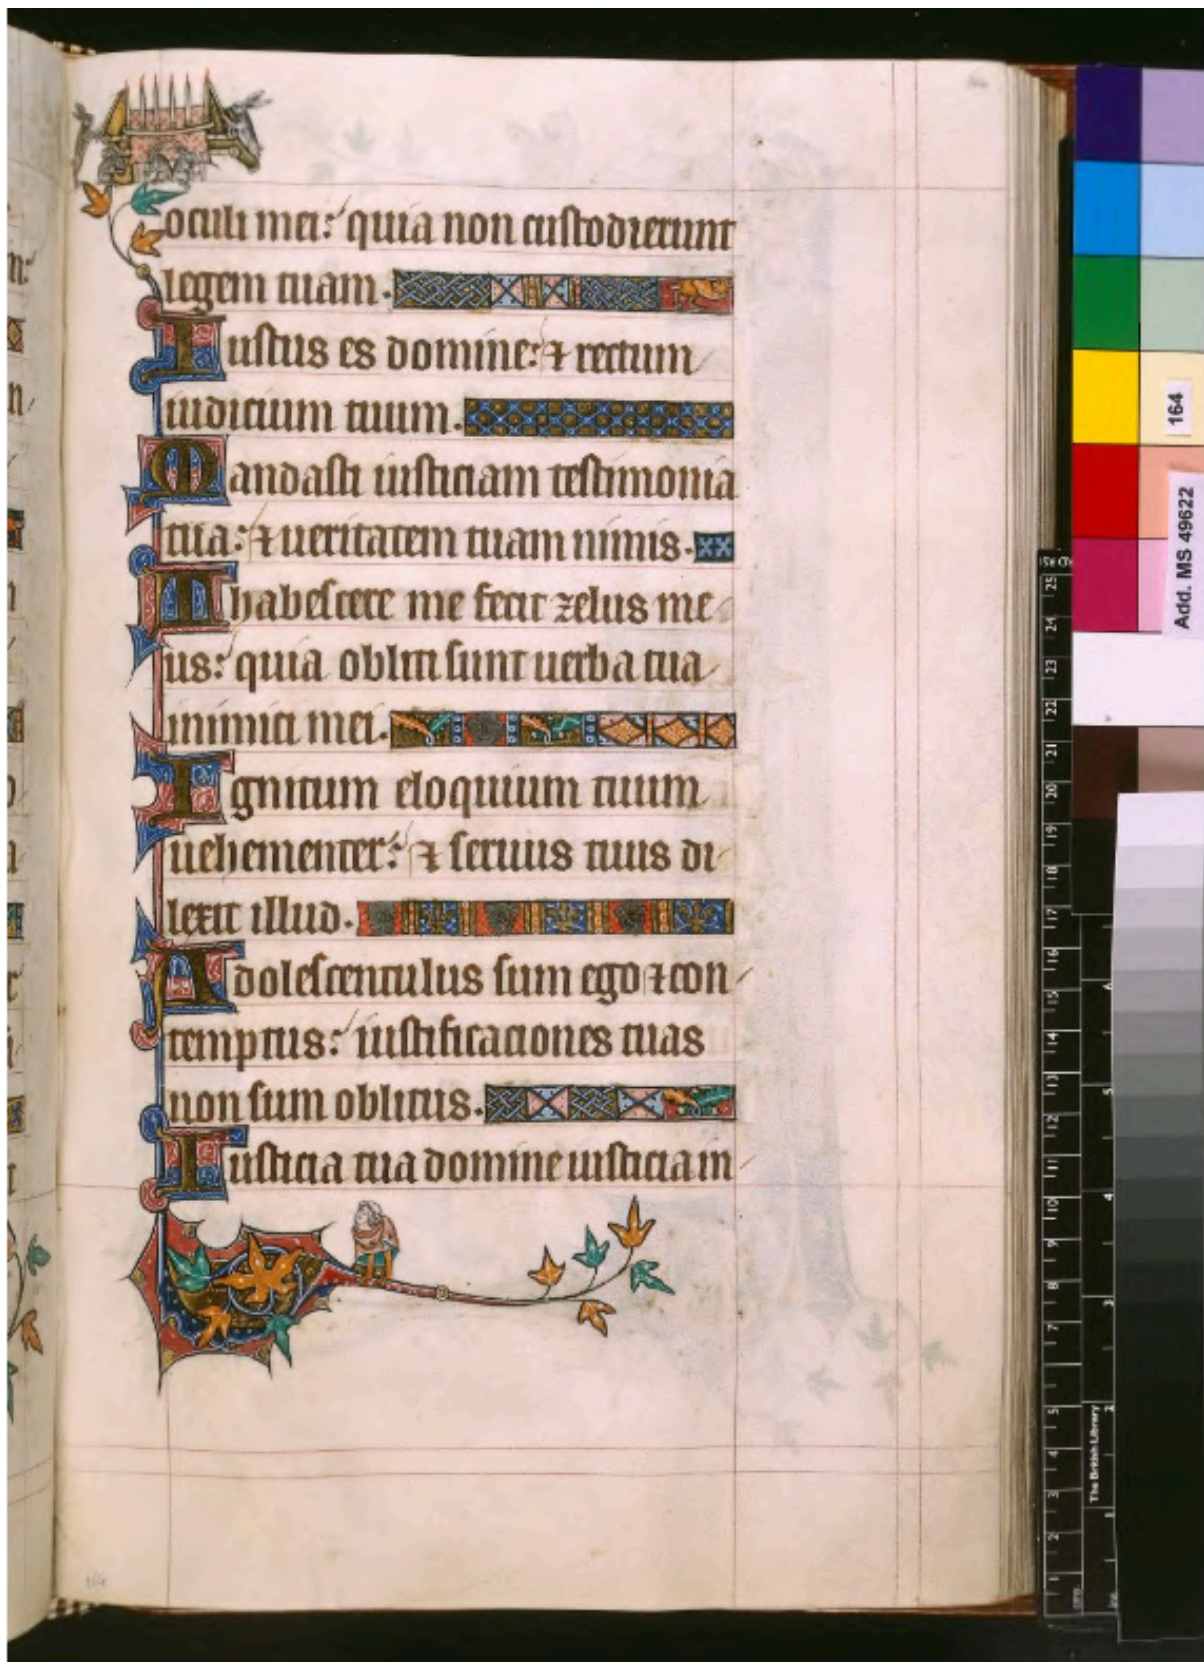 oculi mei: quia non custodierunt
legem tuam.
Iustus es domine: ⁊ rectum
iudicium tuum.
Mandasti iusticiam testimonia
tua: ⁊ ueritatem tuam nimis.
Thabescere me fecit zelus me
us: quia obliti sunt uerba tua
inimici mei.
Ignitum eloquium tuum
uehementer: ⁊ seruus tuus di
lexit illud.
Adolescentulus sum ego ⁊ con
temptus: iustificaciones tuas
non sum oblitus.
Iusticia tua domine iusticia in
164
Add. MS 49622
The British Library